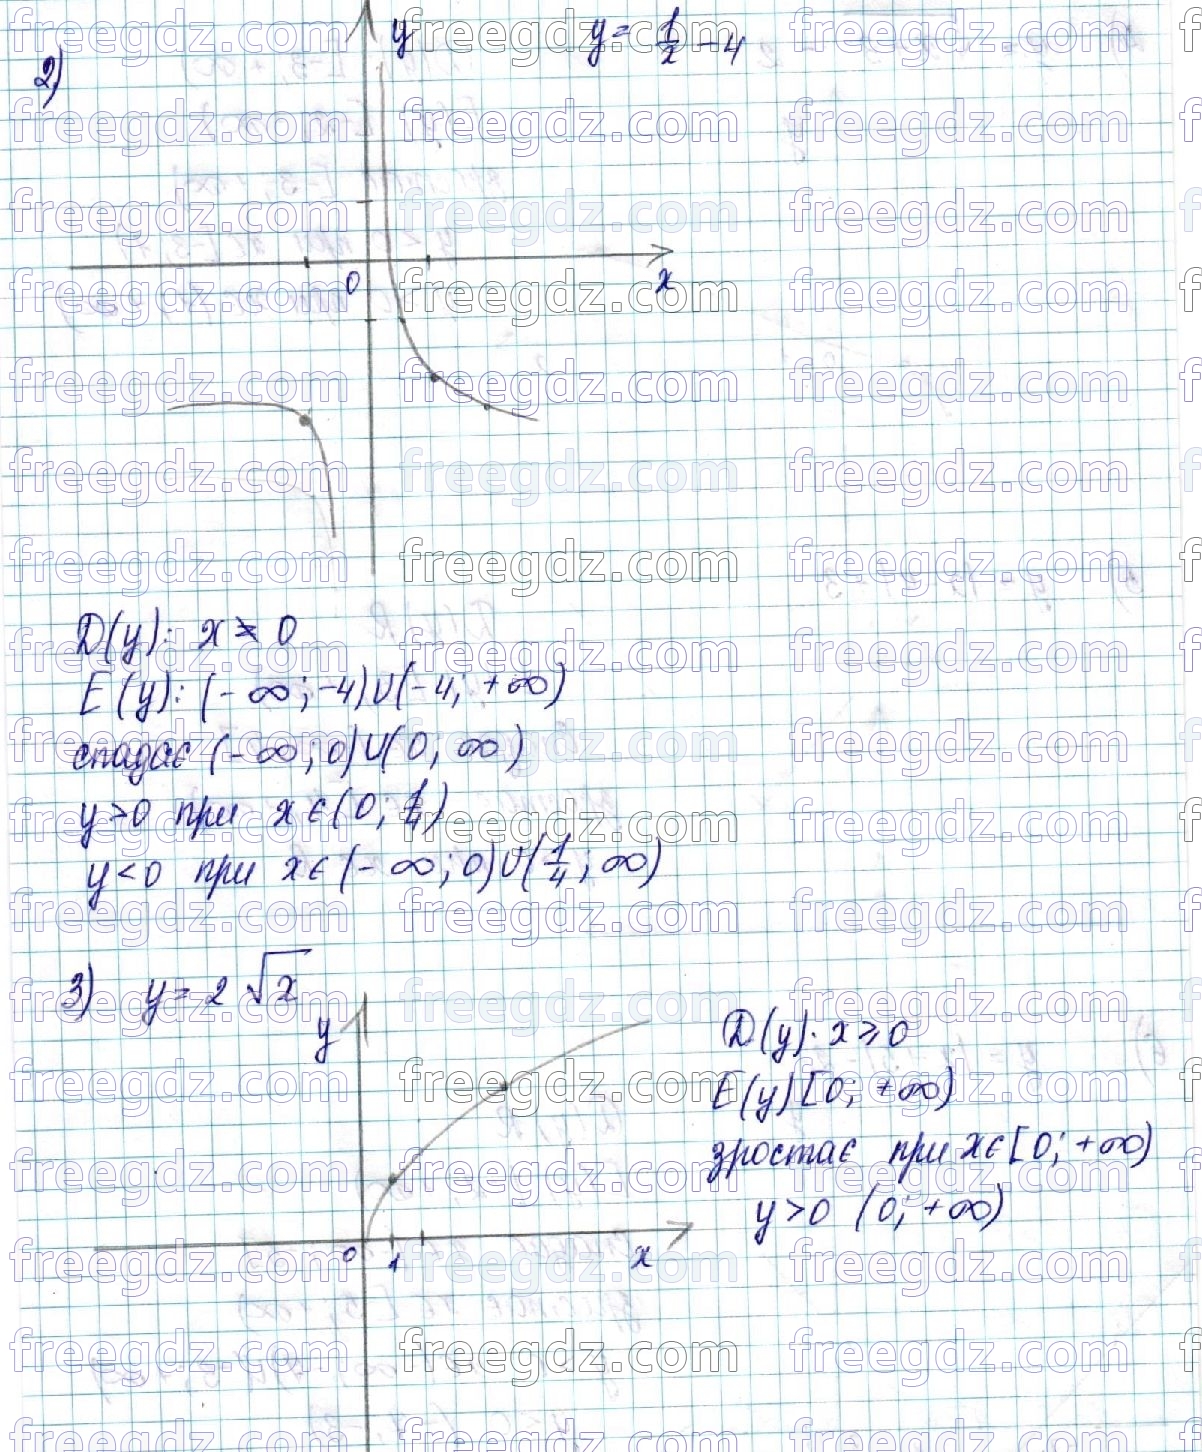 2)
y
y = 1/x - 4
0
x
D(y): x ≠ 0
E(y): (-∞; -4)∪(-4; +∞)
спадає (-∞; 0)∪(0; ∞)
y>0 при x∈(0; 1/4)
y<0 при x∈(-∞; 0)∪(1/4; ∞)
3) y = 2√x
y
0
1
x
D(y): x ≥ 0
E(y) [0; +∞)
зростає при x∈[0; +∞)
y>0 (0; +∞)
freegdz.com